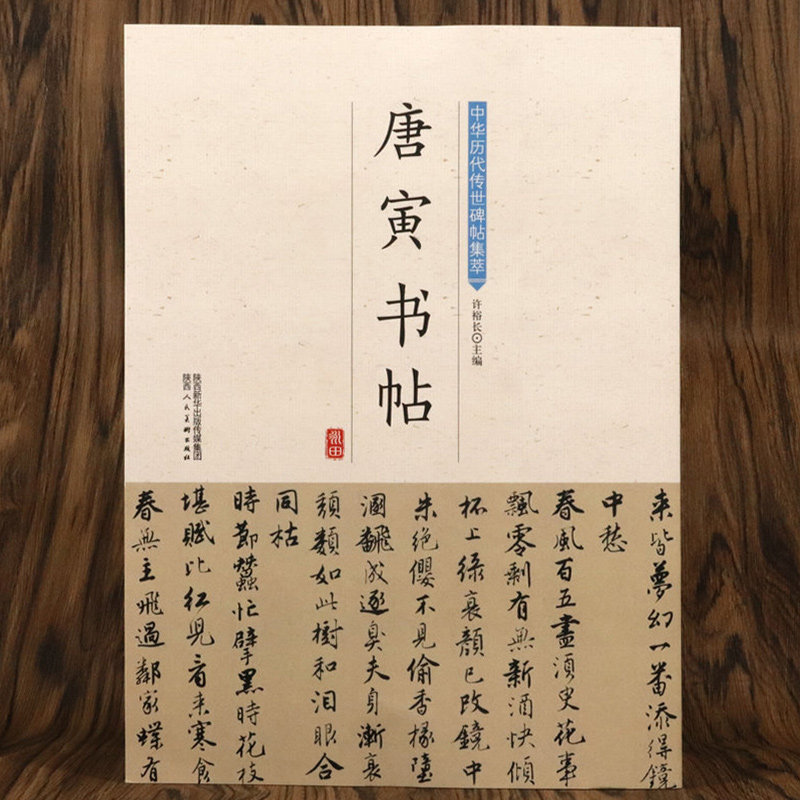 中华历代传世碑帖集萃
许裕长⊙主编
唐寅书帖
陕西新华出版传媒集团
陕西人民美术出版社
来皆夢幻一番添得鏡
中愁
春風百五盡須臾花事
飄零剩有無新酒快傾
杯上緑衰顏已改鏡中
朱絶纓不見偷香掾墮
溷翻成逐臭夫身漸衰
頽類如此樹和泪眼合
同枯
時節蠶忙擘黑時花枝
堪賦比红兒看来寒食
春無主飛過鄰家蝶有